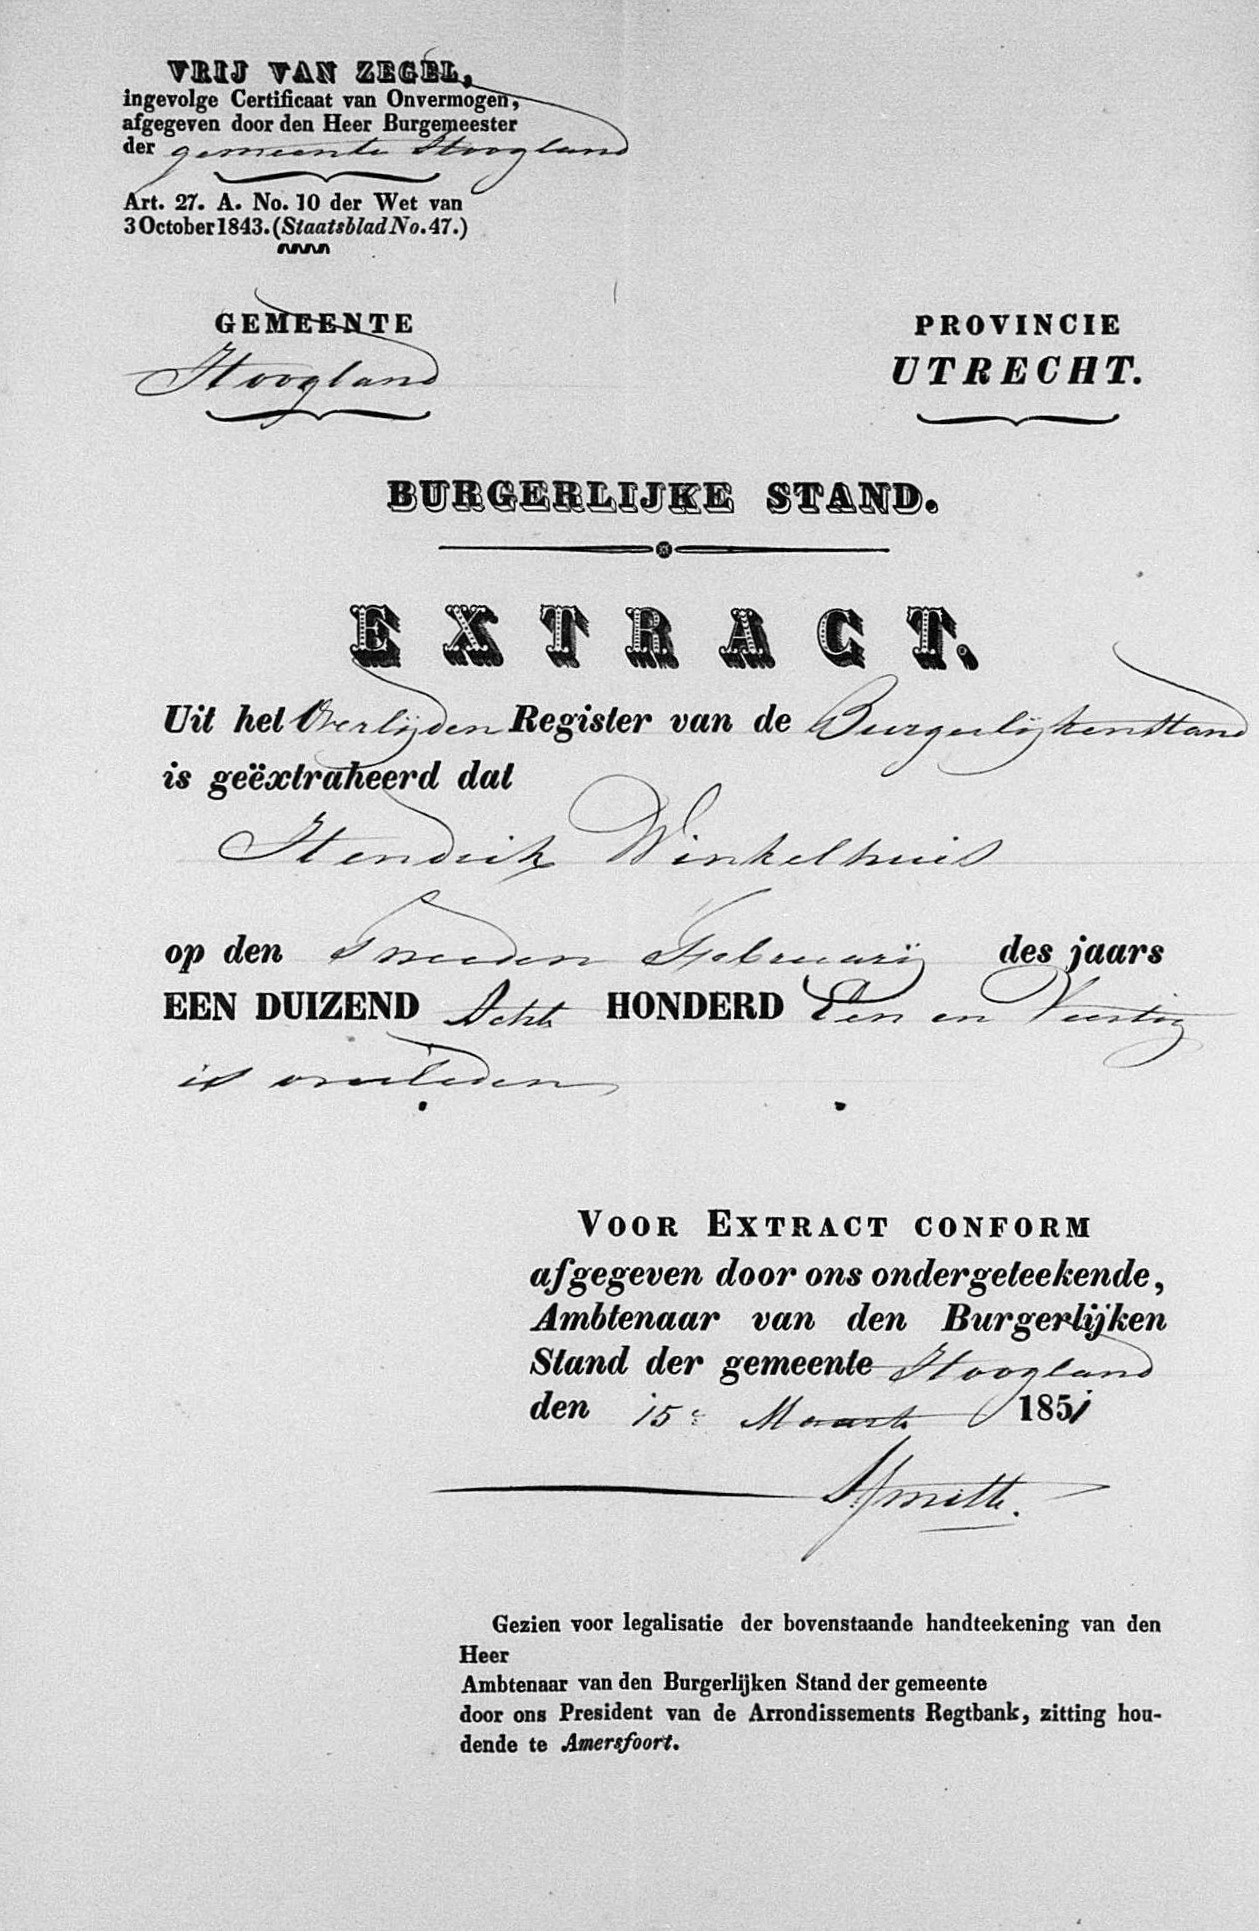 VRIJ VAN ZEGEL,
ingevolge Certificaat van Onvermogen,
afgegeven door den Heer Burgemeester
der gemeente Hoogland
Art. 27. A. No. 10 der Wet van
3 October 1843. (Staatsblad No. 47.)
GEMEENTE
Hoogland
PROVINCIE
UTRECHT.
BURGERLIJKE STAND.
EXTRACT.
Uit het Overlijden Register van de Burgerlijken Stand
is geëxtraheerd dat
Hendrik Winkelhuis
op den Tweeden Februarij des jaars
EEN DUIZEND Acht HONDERD Een en Veertig
is overleden
VOOR EXTRACT CONFORM
afgegeven door ons ondergeteekende,
Ambtenaar van den Burgerlijken
Stand der gemeente Hoogland
den 15e Maart 1851
Gezien voor legalisatie der bovenstaande handteekening van den
Heer
Ambtenaar van den Burgerlijken Stand der gemeente
door ons President van de Arrondissements Regtbank, zitting hou-
dende te Amersfoort.